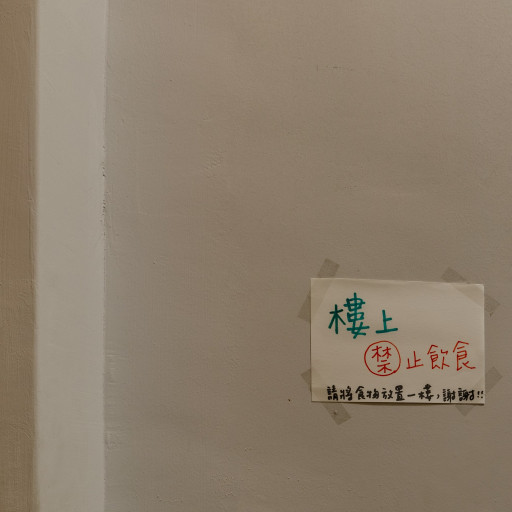 樓上
禁止飲食
請將食物放置一樓，謝謝!!